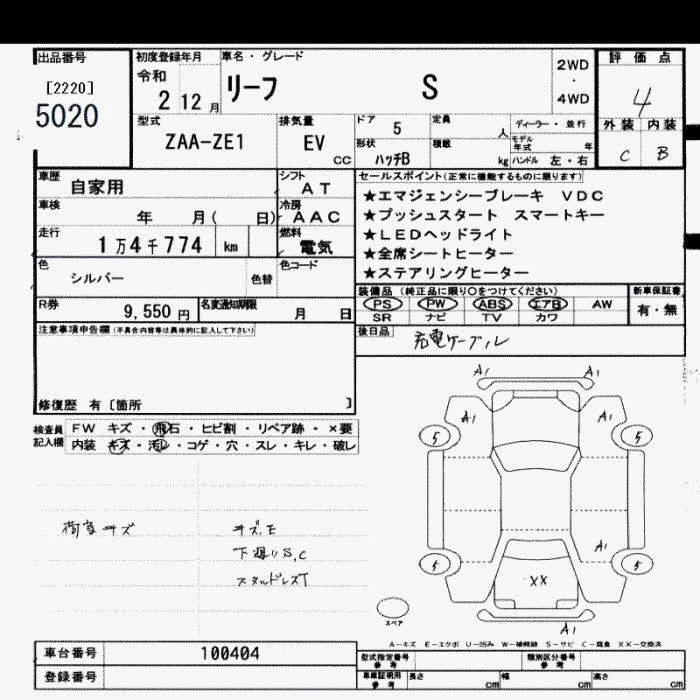 出品番号
[2220]
5020
初度登録年月
令和
2 12 月
車名・グレード
リーフ S
2WD
・
4WD
評価点
4
外装 内装
C B
型式
ZAA-ZE1
排気量
EV
CC
ドア
5
定員
人
形状
ハッチB
積載
kg
ディーラー・並行
モデル年式 年
ハンドル 左・右
車歴
自家用
シフト
AT
車検
年 月( 日)
冷房
AAC
走行
1万4千774 km
燃料
電気
色
シルバー
色替
色コード
R券
9,550 円
名変通知期限
月 日
セールスポイント(正常に機能するものに限ります)
★エマジェンシーブレーキ VDC
★プッシュスタート スマートキー
★LEDヘッドライト
★全席シートヒーター
★ステアリングヒーター
装備品 (純正品に限り○をつけてください)
PS PW ABS エアB AW
SR ナビ TV カワ
新車保証書
有・無
後日品
充電ケーブル
注意事項申告欄(不具合内容等は具体的に記入して下さい)
修復歴 有 [箇所 ]
検査員記入欄
FW キズ・飛石・ヒビ割・リペア跡・×要
内装 キズ・汚レ・コゲ・穴・スレ・キレ・破レ
荷室キズ
キズ、E
下廻りS,C
スタッドレスT
A1 A1
A1
5 5
A1
5 5
XX
A1
スペア
A-キズ E-エクボ U-凹み W-補修跡 S-サビ C-腐食 XX-交換済
車台番号
100404
登録番号
型式指定番号
参考
類別区分番号
参考
車庫証明用
参考
長さ cm
幅 cm
高さ cm